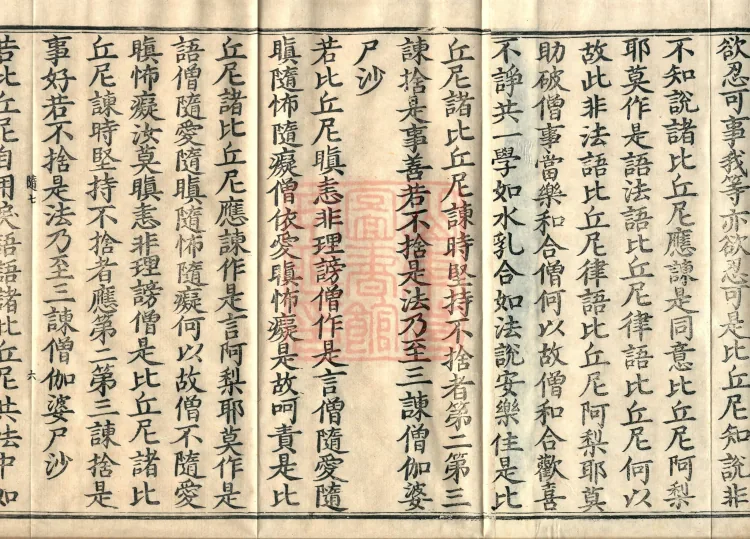 欲忍可事我等亦欲忍可是比丘尼知說非
不知說諸比丘尼應諫是同意比丘尼阿梨
耶莫作是語法語比丘尼律語比丘尼何以
故此非法語比丘尼律語比丘尼阿梨耶莫
助破僧事當樂和合僧何以故僧和合歡喜
不諍共一學如水乳合如法說安樂住是比
丘尼諸比丘尼諫時堅持不捨者第二第三
諫捨是事善若不捨是法乃至三諫僧伽婆
尸沙
若比丘尼瞋恚非理謗僧作是言僧隨愛隨
瞋隨怖隨癡僧依愛瞋怖癡是故呵責是比
丘尼諸比丘尼應諫作是言阿梨耶莫作是
語僧隨愛隨瞋隨怖隨癡何以故僧不隨愛
瞋怖癡汝莫瞋恚非理謗僧是比丘尼諸比
丘尼諫時堅持不捨者應第二第三諫捨是
事好若不捨是法乃至三諫僧伽婆尸沙
隨七 六
若比丘尼自用戾語諸比丘尼共法中如